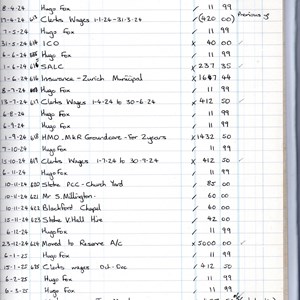 8-4-24 Hugo Fox / 11 99
17-4-24 Clerks Wages 1-1-24-31-3-24 (420 00) Previous y
7-5-24 Hugo Fox / 11 99
31-5-24 614 ICO x 40 00
4-6-24 Hugo Fox / 11 99
1-6-24 SALC / 237 35
1-6-24 616 Insurance - Zurich Municipal 44
8-7-24 Hugo Fox / 11 99
13-7-24 617 Clerks Wages 1-4-24 to 30-6-24 412 50
6-8-24 Hugo Fox / 11 99
6-9-24 Hugo Fox 11 99
1-9-24 618 HMO. M&R Groundcare - For 2 years x 1432 50
7-10-24 Hugo Fox 11 99
15-10-24 619 Clerks Wages 1-7-24 to 30-9-24 x 412 50
6-11-24 Hugo Fox 11 99
10-11-24 620 Stoke PCC - Church Yard 85 00
10-11-24 621 Mr S. Millington 60 00
10-11-24 622 Blackfont Chapel 60 00
12-11-24 623 Stoke V. Hall Hire / 42 00
6-12-24 Hugo Fox 11 99
23-12-24 624 Moved to Reserve A/c x 5000 00
6-1-25 Hugo Fox 11 99
15-1-25 625 Clerks wages Oct-Dec / 412 50
6-2-25 Hugo Fox 11 99
6-3-25 Hugo Fox 11 99